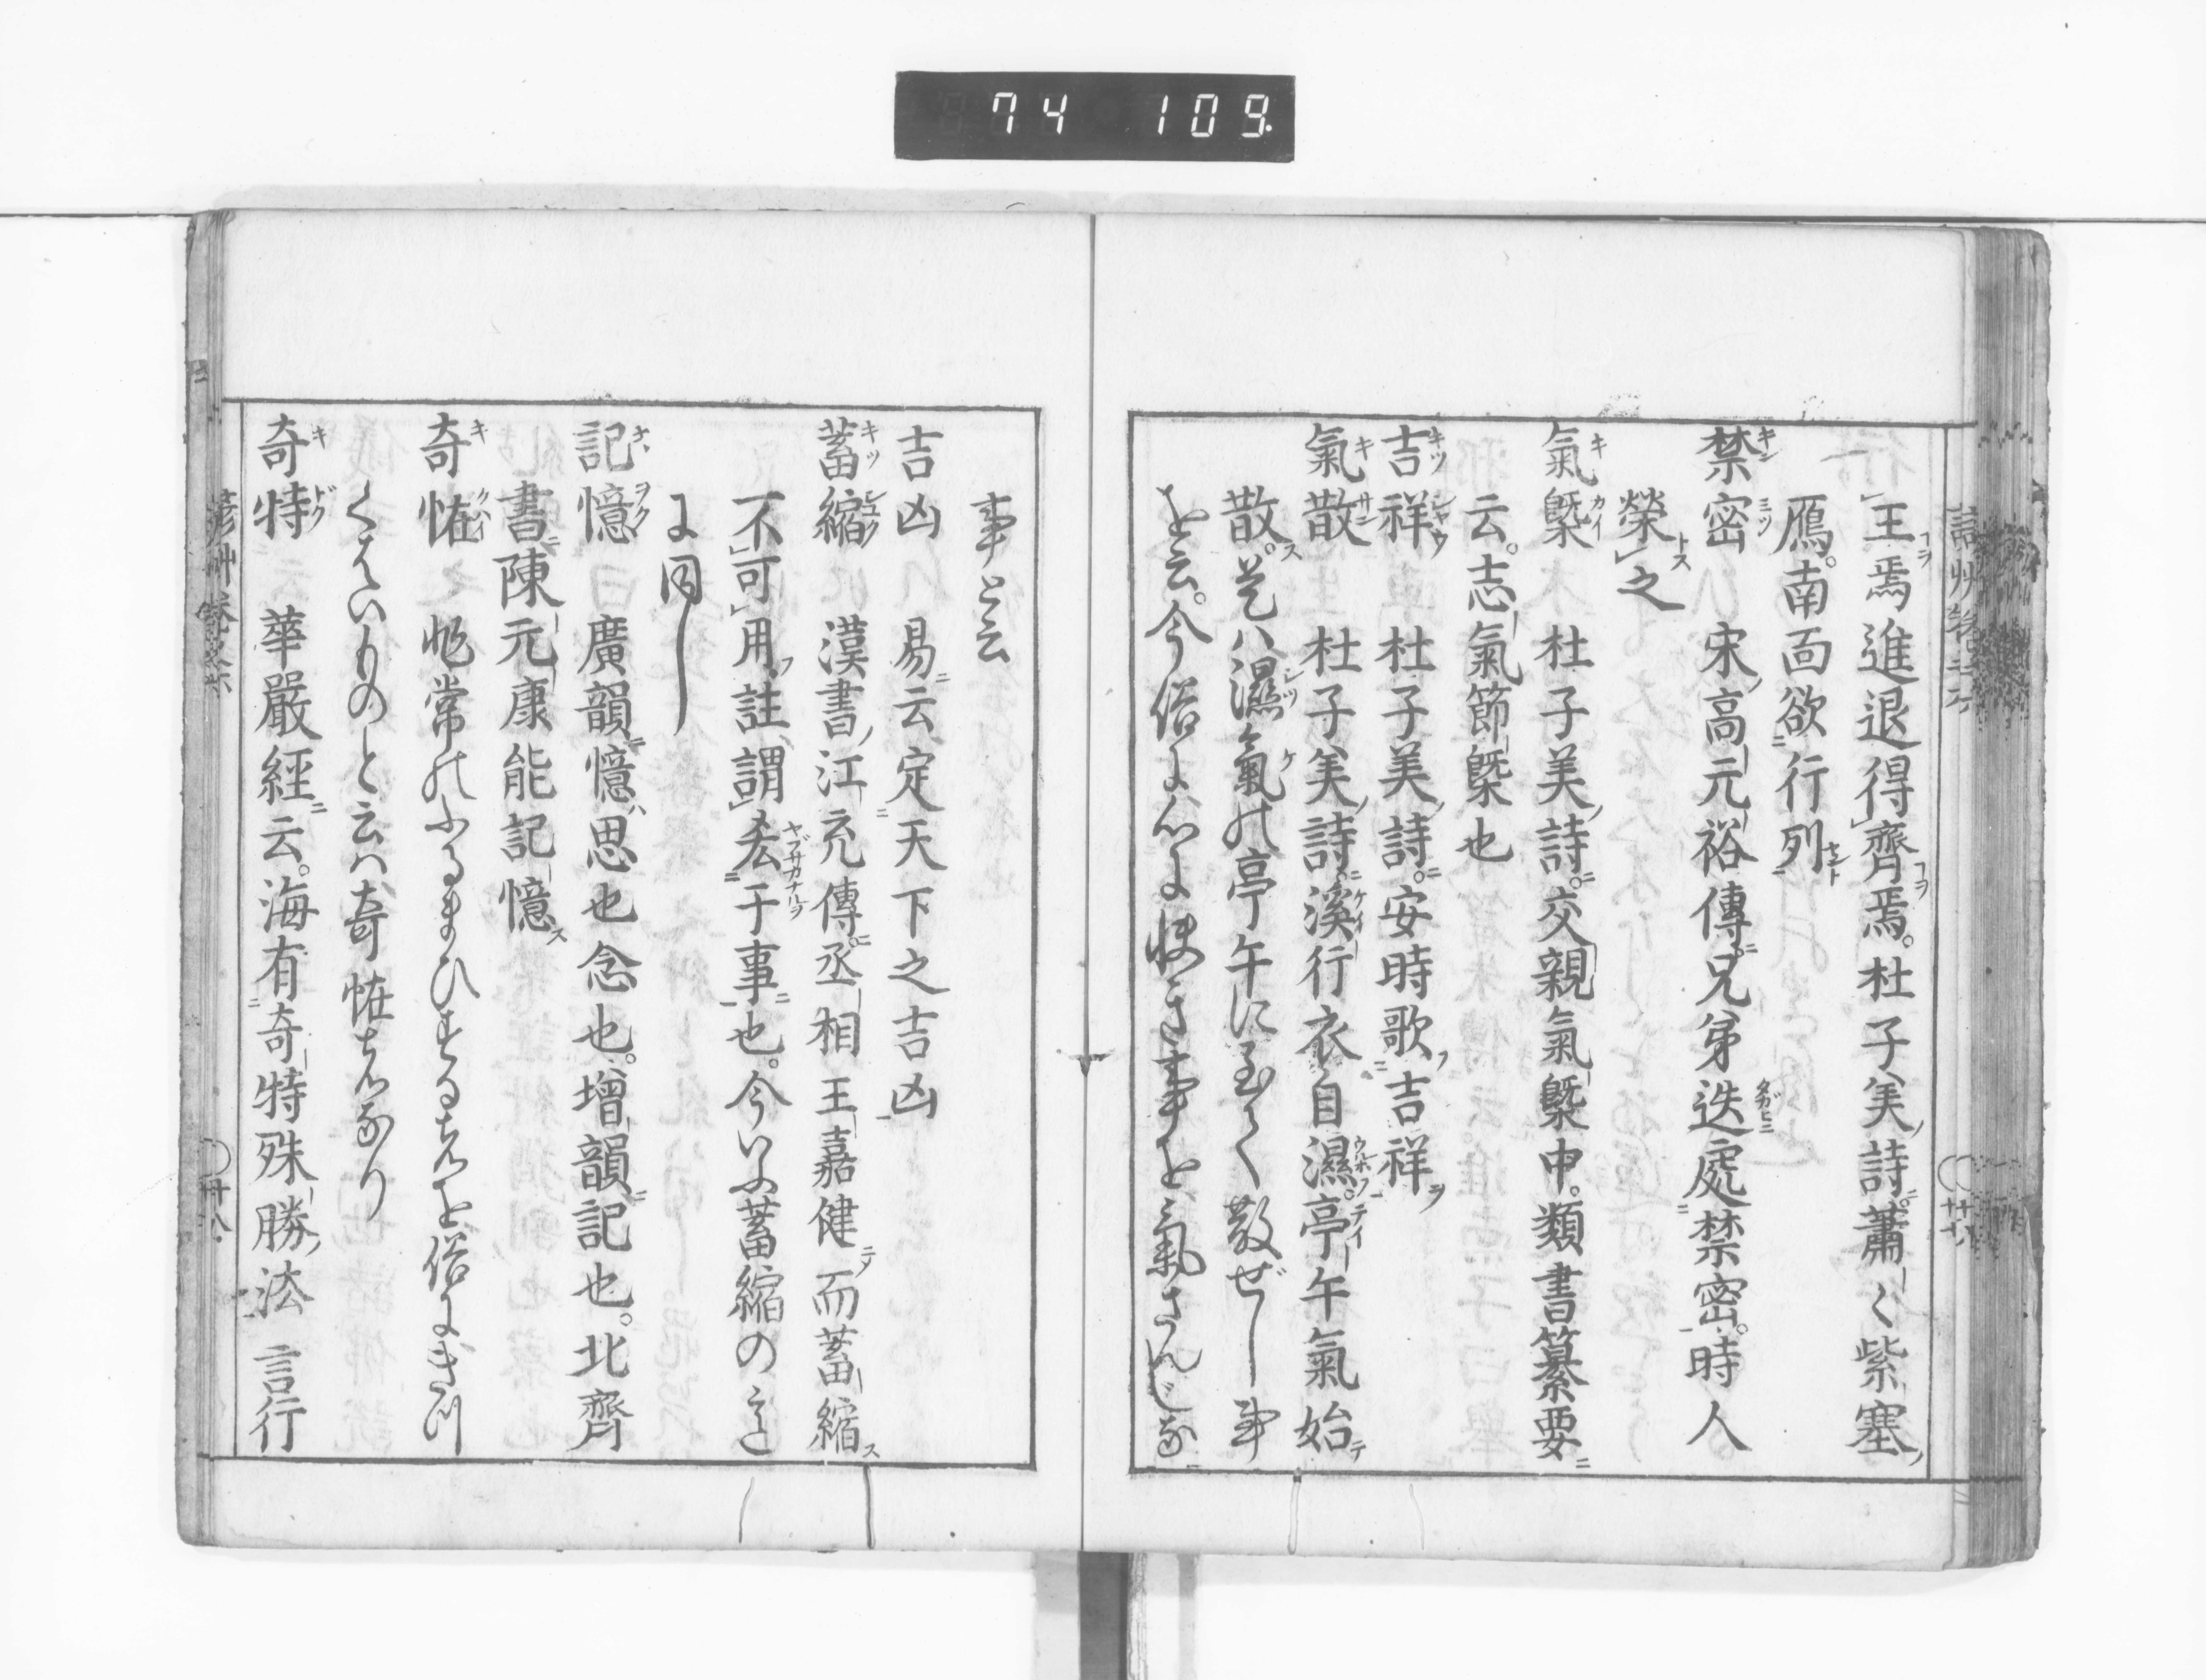 74 109
王焉進退得齊焉。杜子美詩。蕭〱紫塞
鴈。南面欲行列
禁密 宋高元裕傳。兄弟迭處禁密。時人
榮之
氣槩 杜子美詩。交親氣槩中。類書纂要
云。志氣節槩也
吉祥 杜子美詩。安時歌吉祥
氣散 杜子美詩。溪行衣自濕。亭午氣始
散。是ハ濕氣の亭午に至〱散ぜし事
を云。今俗に心に快き事を氣さんじな
事と云
吉凶 易云定天下之吉凶
蓄縮 漢書江充傳。丞相王嘉健而蓄縮
不可用。註謂𠫤于事也。今いふ蓄縮のこと
に同し
記憶 廣韻憶思也念也。增韻記也。北齊
書陳元康能記憶
奇恠 非常のふるまひするものを俗にきつ
くはいものと云ハ奇恠ものなり
奇特 華嚴經云。海有奇特殊勝法 言行